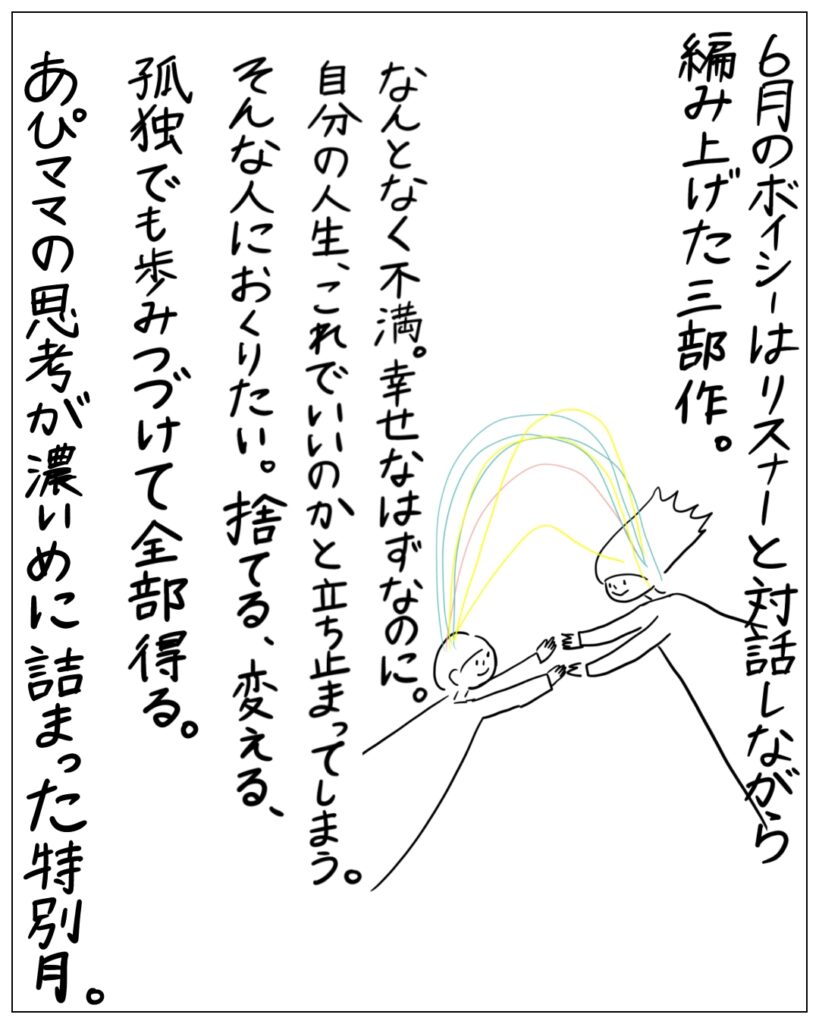 6月のボイシーはリスナーと対話しながら
編み上げた三部作。
なんとなく不満。幸せなはずなのに。
自分の人生、これでいいのかと立ち止まってしまう。
そんな人におくりたい。捨てる、変える、
孤独でも歩みつづけて全部得る。
あぴママの思考が濃いめに詰まった特別月。